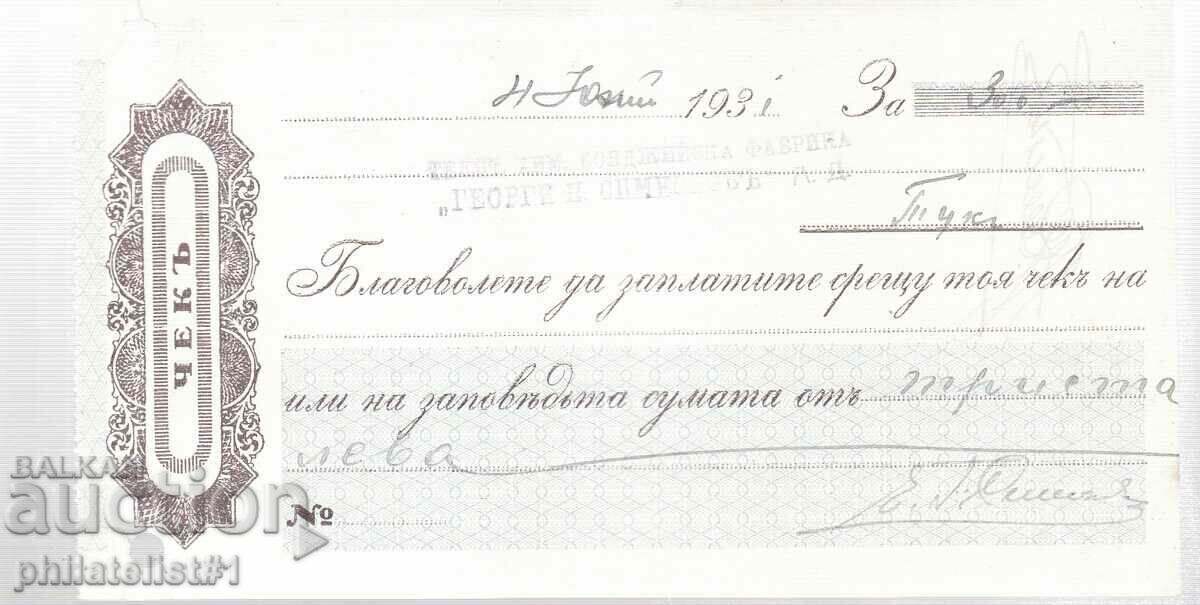 ЧЕКЪ
4 Юний 1931 За 300
ТЕКСТ. ХИМ. БОЯДЖИЙСКА ФАБРИКА
„ГЕОРГИ П. СИМЕОНОВЪ“ А. Д.
Тукъ
Благоволете да заплатите срещу тоя чекъ на
или на заповѣдьта сумата отъ триста
лева
№
BALKAN
auction
philatelist#1